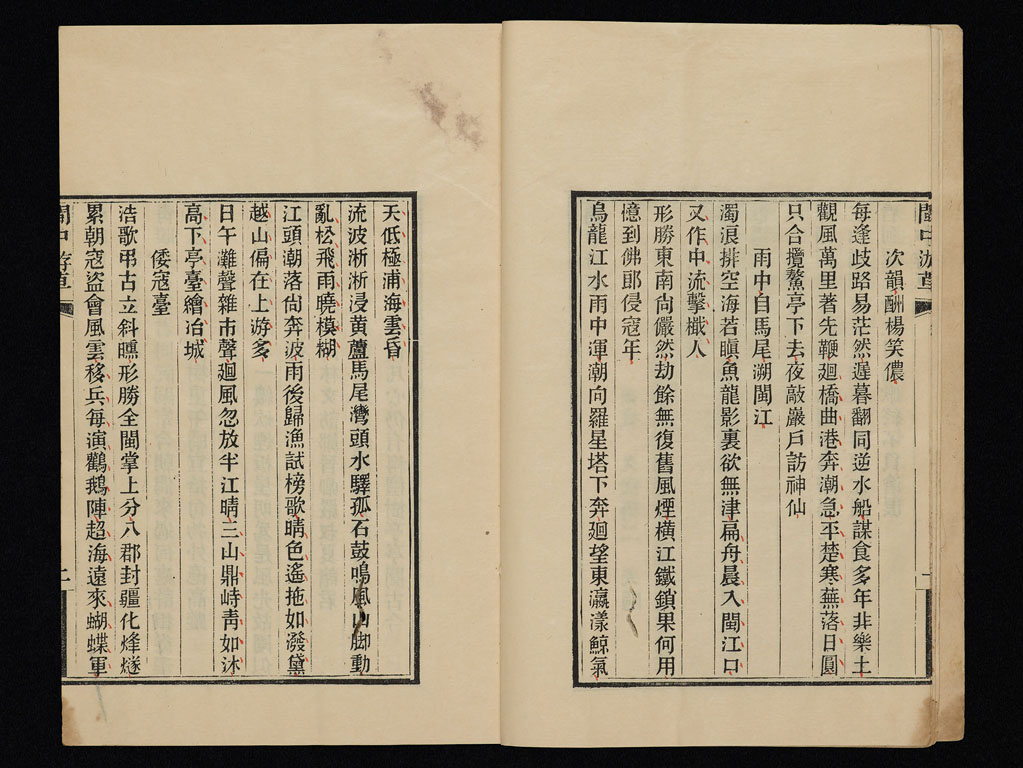 閩中游草
次韻酬楊笑儂
每逢歧路易茫然遲暮翻同逆水船謀食多年非樂土
觀風萬里著先鞭迴橋曲港奔潮急平楚寒蕪落日圓
只合攬鰲亭下去夜敲嚴戶訪神仙
雨中自馬尾溯閩江
濁浪排空海若瞋魚龍影裏欲無津扁舟晨入閩江口
又作中流擊檝人
形勝東南尚儼然劫餘無復舊風煙橫江鐵鎖果何用
憶到佛郎侵寇年
烏龍江水雨中渾潮向羅星塔下奔迴望東瀛漾鯨氛
天低極浦海雲昏
流波淅淅浸黃蘆馬尾灣頭水驛孤石鼓鳴風山脚動
亂松飛雨曉模糊
江頭潮落尚奔波雨後歸漁試榜歌晴色遙拖如潑黛
越山偏在上游多
日午灘聲雜市聲迴風忽放半江晴三山鼎峙青如沐
高下亭臺繪冶城
倭寇臺
浩歌弔古立斜曛形勝全閩掌上分八郡封疆化烽燧
累朝寇盜會風雲移兵每演鸛鵝陣超海遠來蝴蝶軍
閩中游草